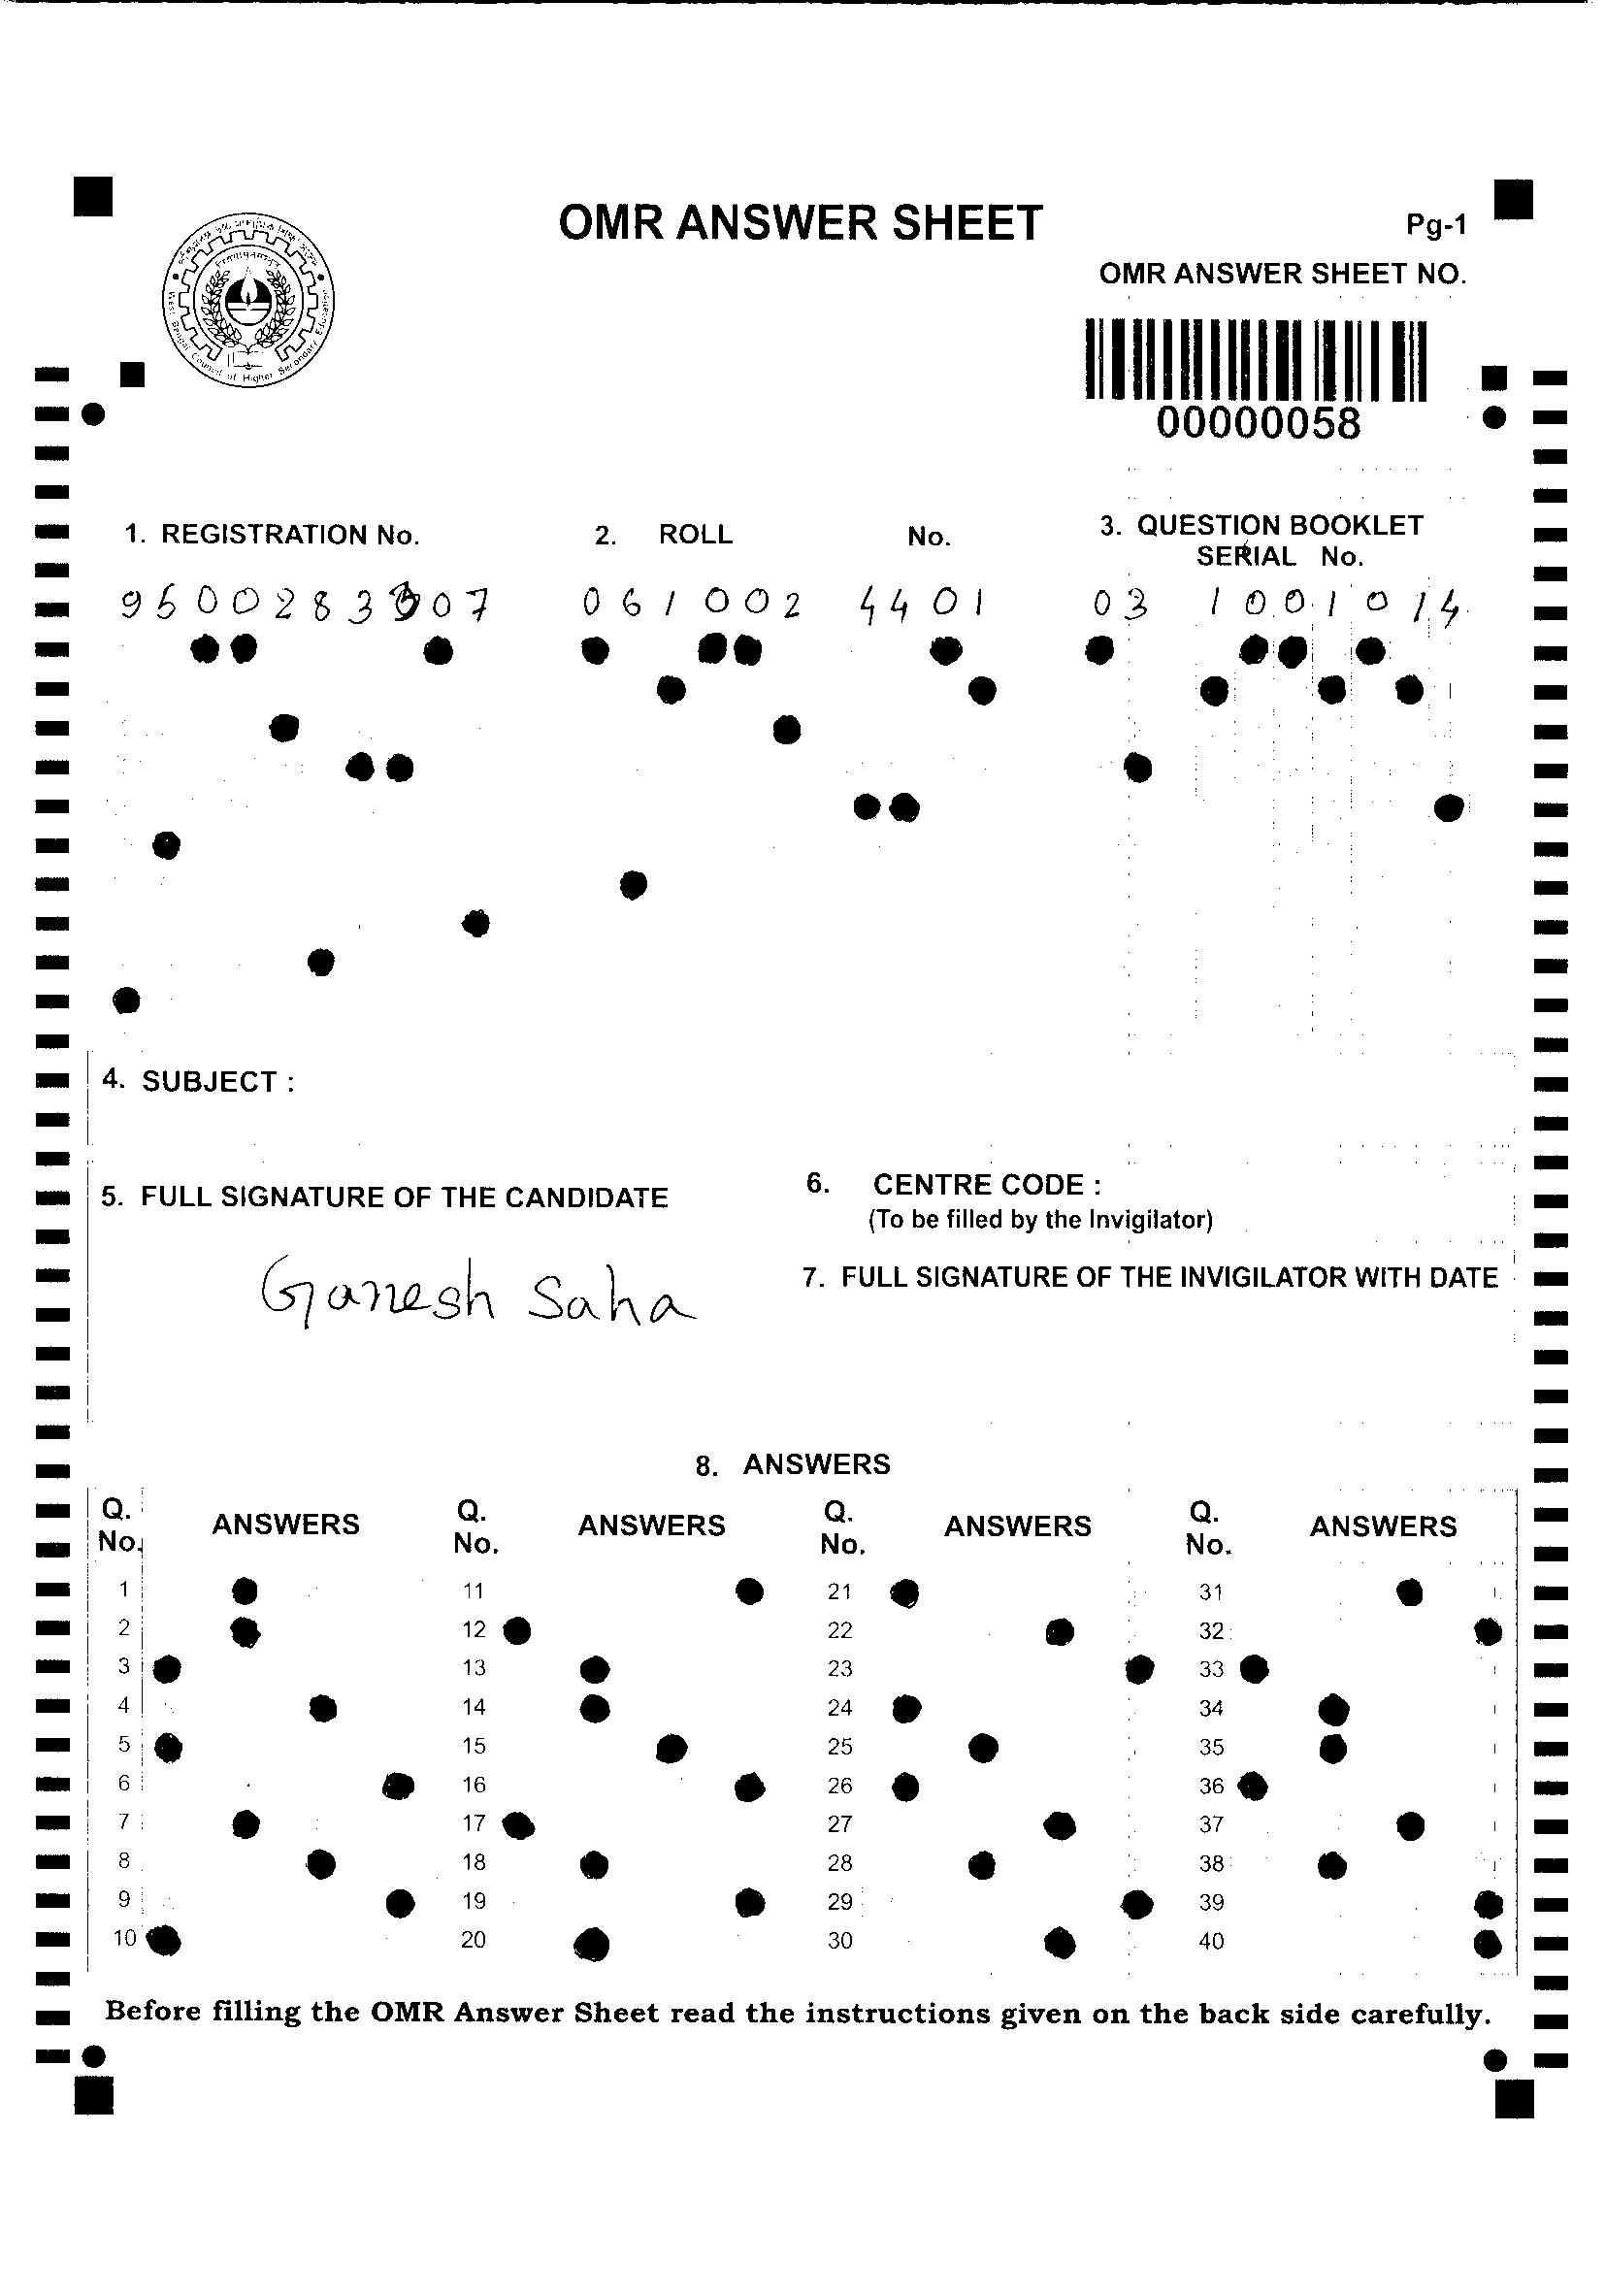 OMR ANSWER SHEET
Pg-1
OMR ANSWER SHEET NO.
West Bengal Council of Higher Secondary Education
00000058
1. REGISTRATION No.
2. ROLL No.
3. QUESTION BOOKLET
SERIAL No.
9500283307
061002 4401
03 1001014
4. SUBJECT :
5. FULL SIGNATURE OF THE CANDIDATE
Ganesh Saha
6. CENTRE CODE :
(To be filled by the Invigilator)
7. FULL SIGNATURE OF THE INVIGILATOR WITH DATE
8. ANSWERS
Q. No. ANSWERS Q. No. ANSWERS Q. No. ANSWERS Q. No. ANSWERS
1 11 21 31
2 12 22 32
3 13 23 33
4 14 24 34
5 15 25 35
6 16 26 36
7 17 27 37
8 18 28 38
9 19 29 39
10 20 30 40
Before filling the OMR Answer Sheet read the instructions given on the back side carefully.